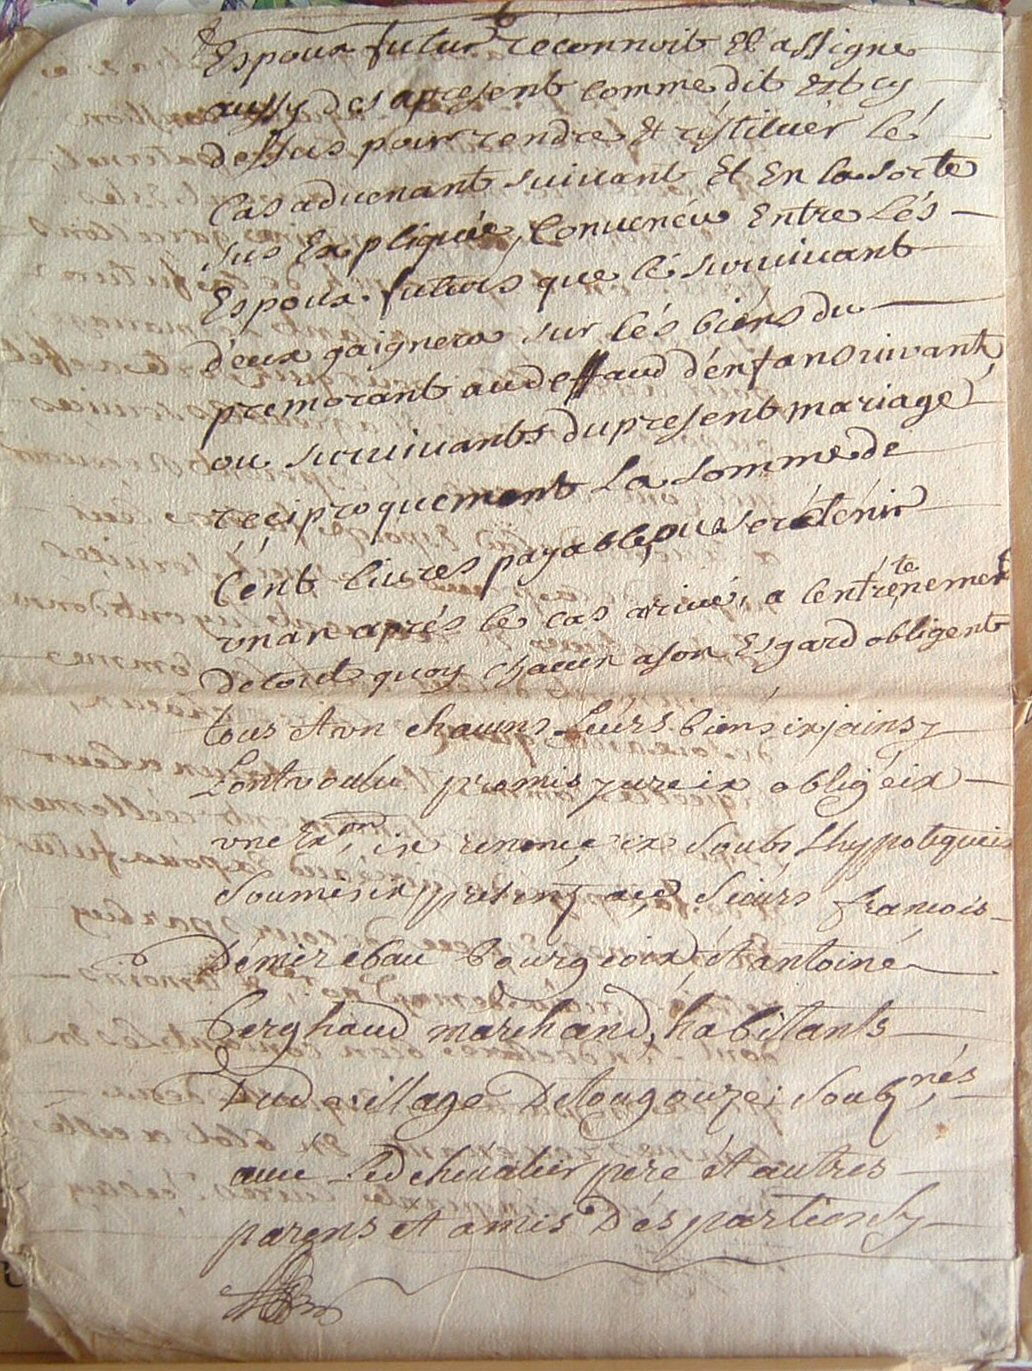 Espoux futur reconnoit Et assigne
aussy des apresent comme dit Est cy
dessus pour rendre Et réstituér lé
Cas aduenant suiuant Et En la sorte
sus Expliquée, Conuenéu Entre Lés
Espoux futurs que lé suruiuant
d'eux gaignera sur lés biéns du
premorant au deffaud d'énfans viuant,
ou suruiuants du present mariage
réciproquement La somme de
Cént liures payable, ou se réténir
vn an aprés le cas ariué, a l'entrénement te
de tout quoy chacun a son Esgard obligent
tous Et vn chacuns Leurs biens
L'ont voulu promis juré obligé
vne renoncé Soubs L'hypotequeis
Soumis présens Sieurs francois
Demirebau bourgeoix, Et antoiné
berghaud marchand, habitants
Dud village Soubnés
auec Led cheualier péré Et autres
parens et amis Dés parties